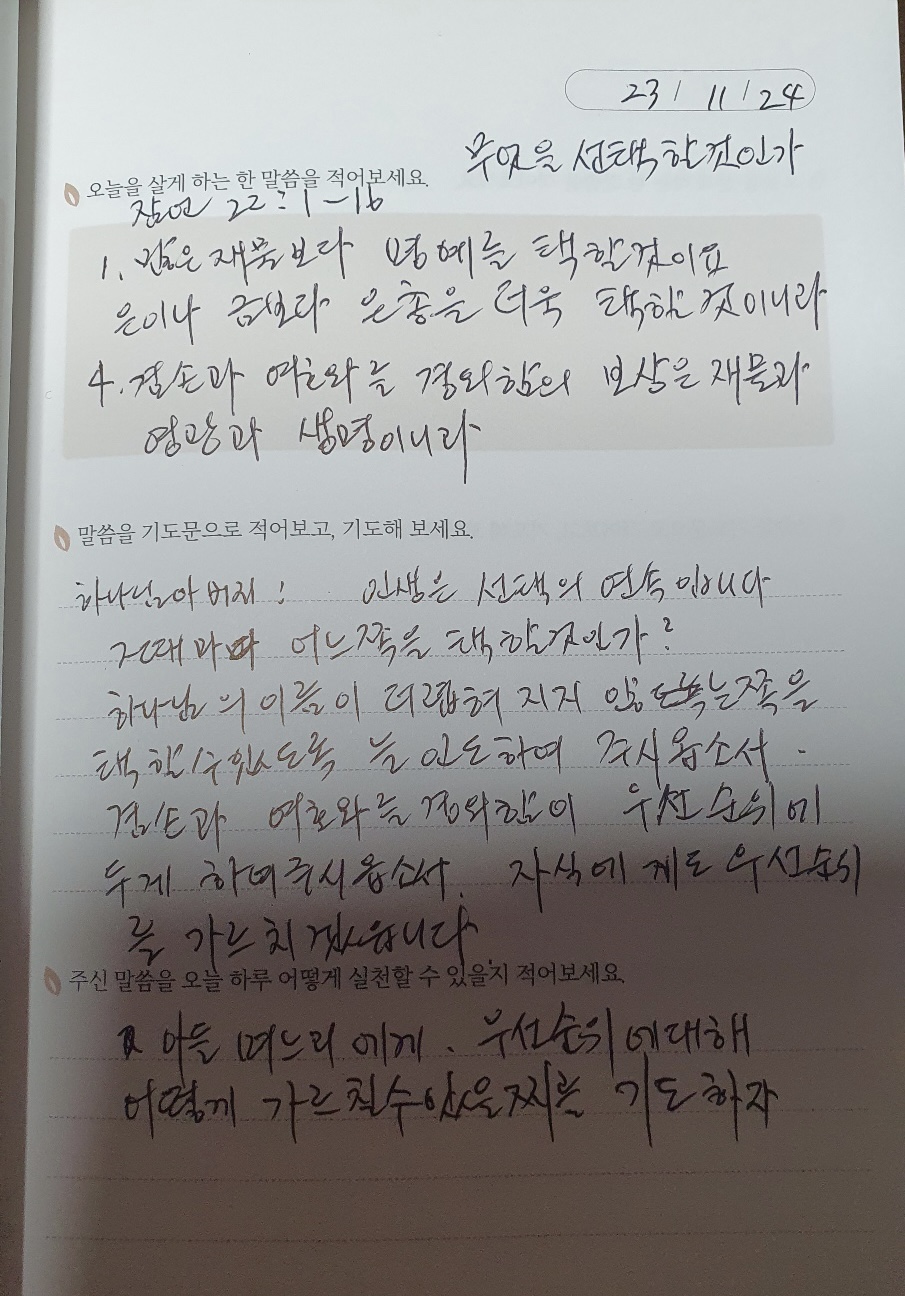 23 / 11 / 24
무엇을 선택할것인가
오늘을 살게 하는 한 말씀을 적어보세요.
잠언 22:1-16
1. 많은 재물보다 명예를 택할것이요
은이나 금보다 은총을 더욱 택할것이니라
4. 겸손과 여호와를 경외함의 보상은 재물과
영광과 생명이니라
말씀을 기도문으로 적어보고, 기도해 보세요.
하나님아버지! 인생은 선택의 연속입니다
그때마다 어느쪽을 택할것인가?
하나님의 이름이 더럽혀지지 않는쪽을
택할수있도록 늘 인도하여 주시옵소서.
겸손과 여호와를경외함이 우선순위에
두게 하여주시옵소서. 자식에게도 우선순위
를 가르치겠습니다.
주신 말씀을 오늘 하루 어떻게 실천할 수 있을지 적어보세요.
아들 며느리에게. 우선순위에대해
어떻게 가르칠수있을찌를 기도하자